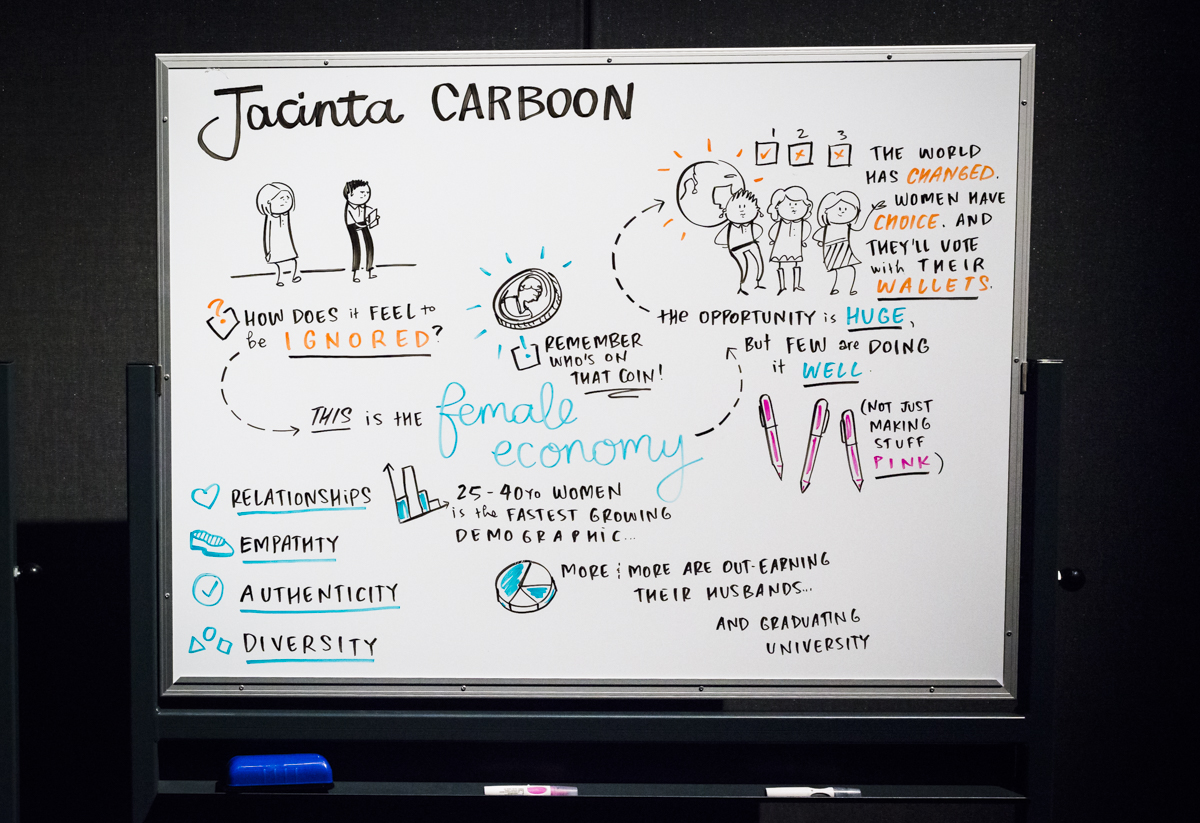 Jacinta CARBOON
1 2 3
THE WORLD
HAS CHANGED.
WOMEN HAVE
CHOICE. AND
THEY'LL VOTE
with THEIR
WALLETS.
?
HOW DOES it FEEL to
be IGNORED?
!
REMEMBER
WHO'S ON
THAT COIN!
THIS is the female
economy
the OPPORTUNITY is HUGE,
BUT FEW are DOING
it WELL.
(NOT JUST
MAKING
STUFF
PINK)
RELATIONSHIPS
EMPATHTY
AUTHENTICITY
DIVERSITY
25-40YO WOMEN
is the FASTEST GROWING
DEMOGRAPHIC...
MORE & MORE ARE OUT-EARNING
THEIR HUSBANDS...
AND GRADUATING
UNIVERSITY